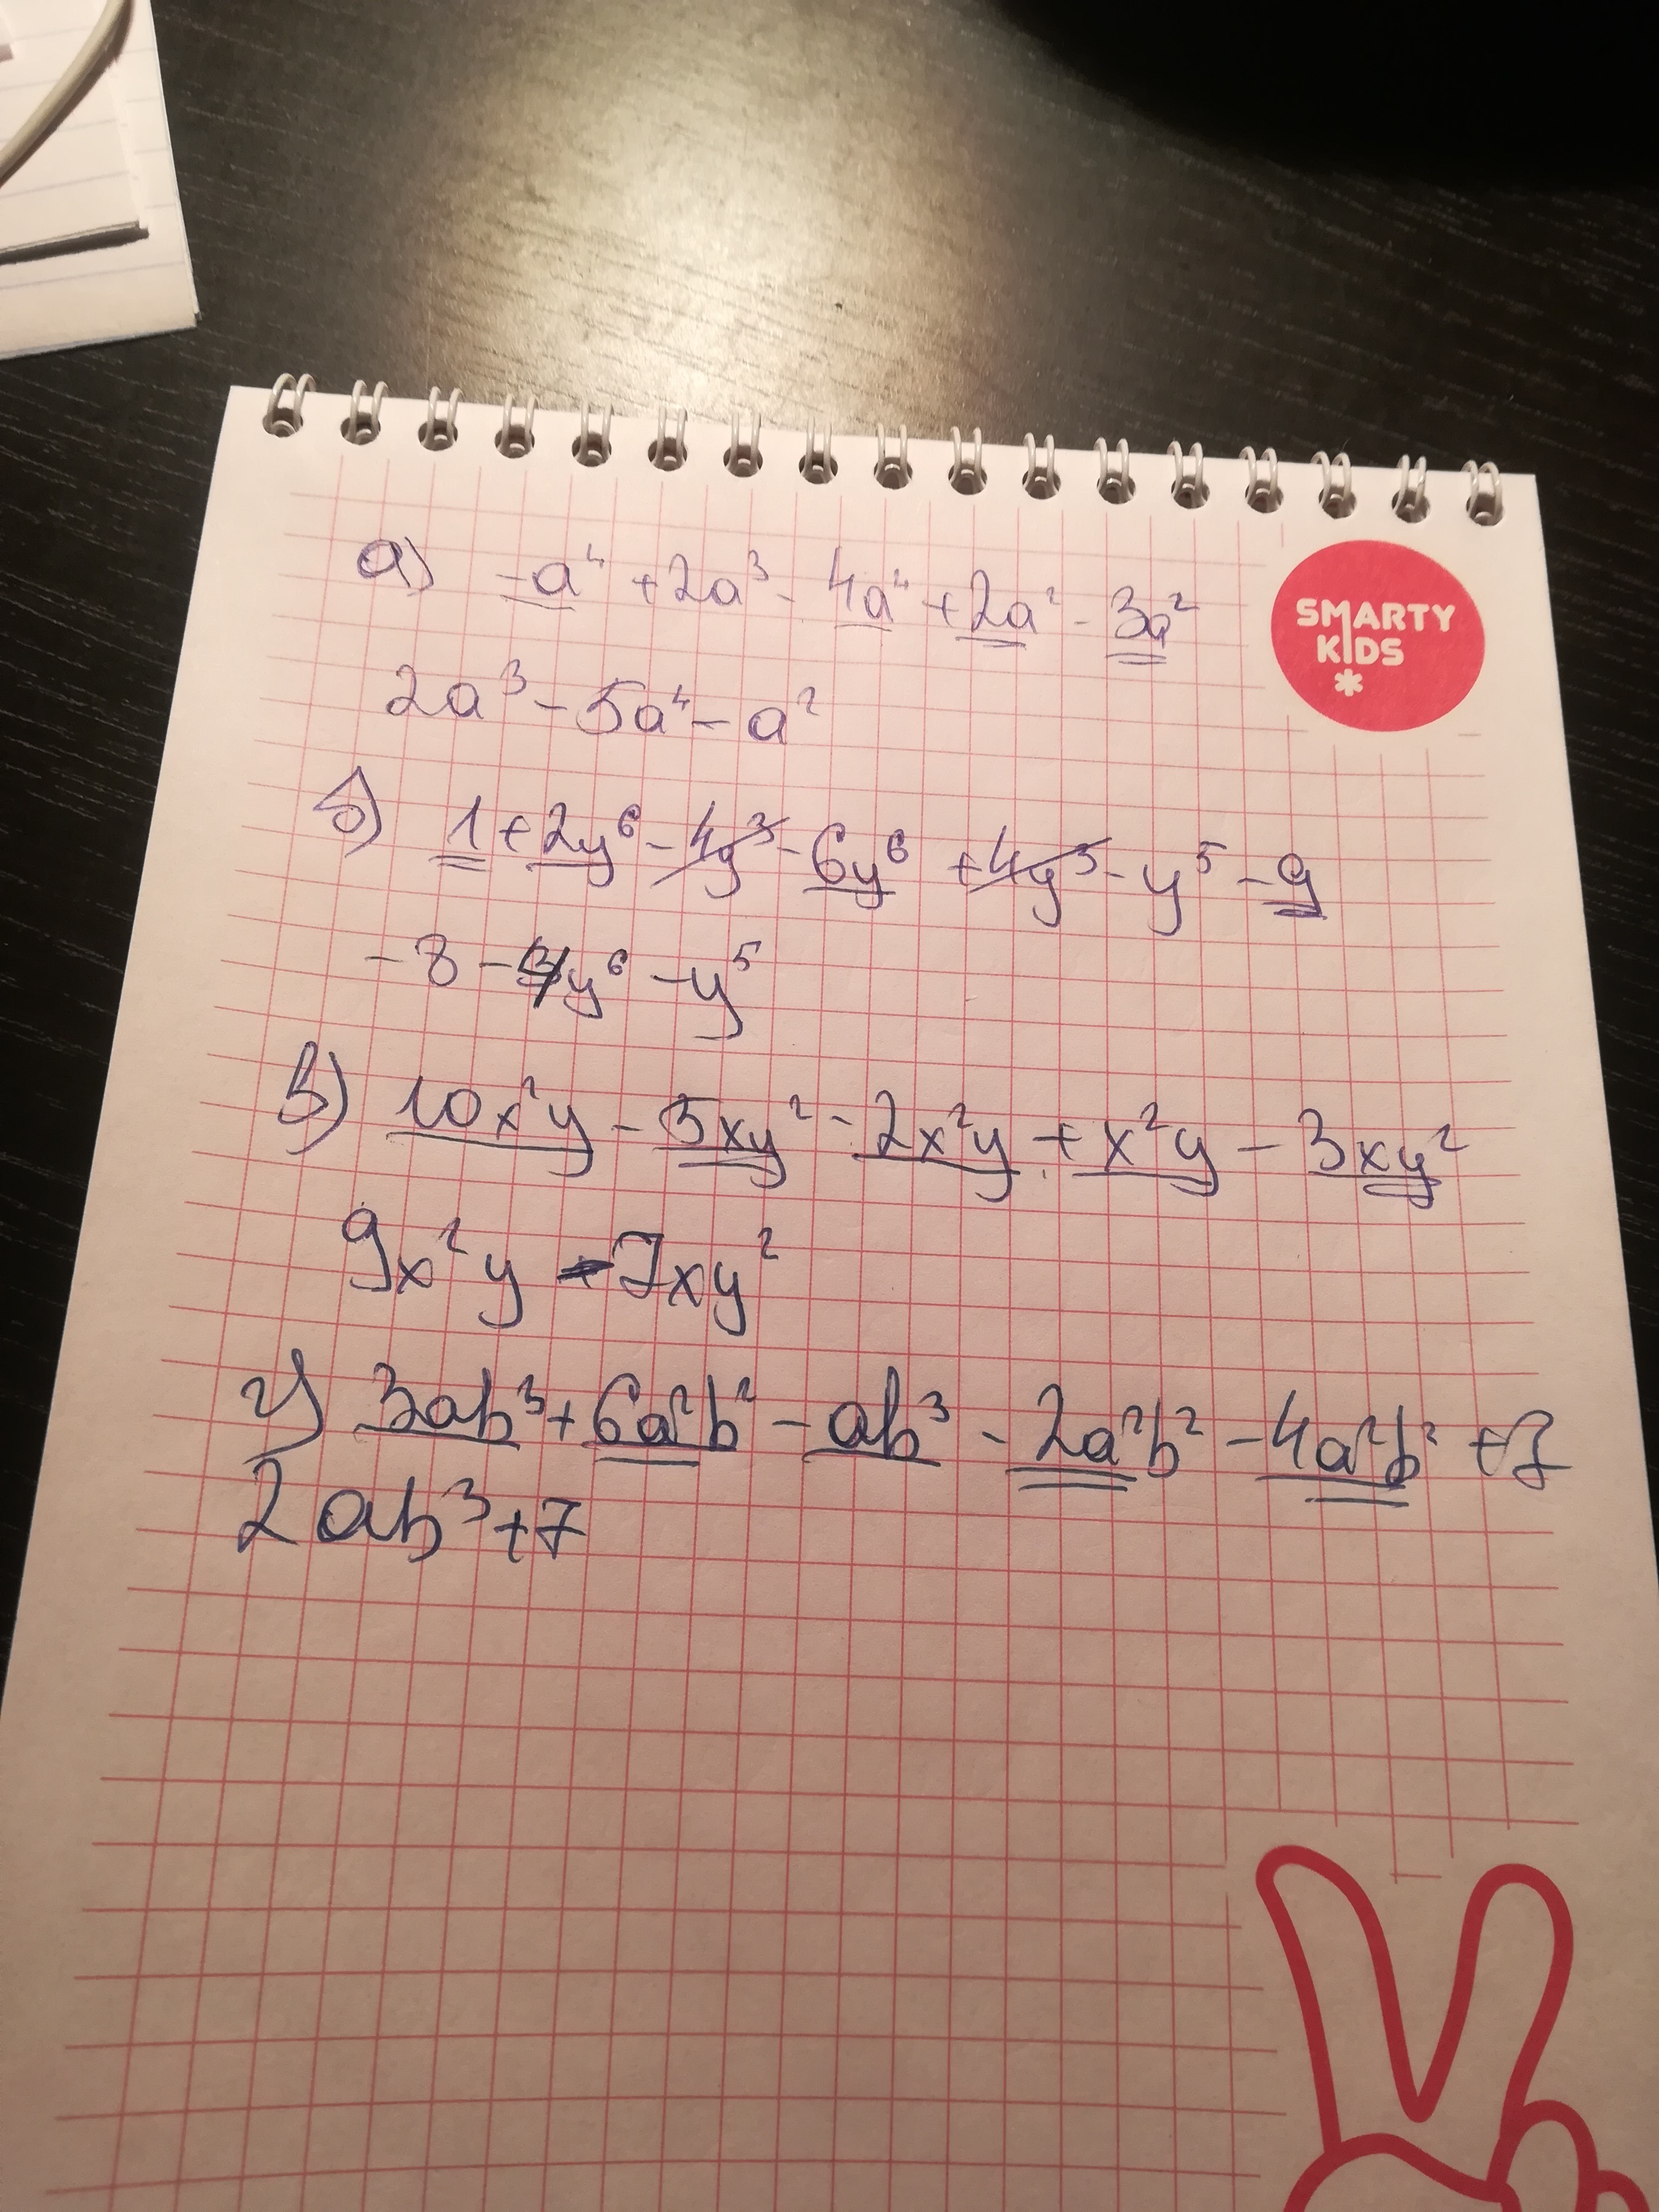 а) -a⁴ + 2a³ - 4a⁴ + 2a² - 3a²
SMARTY
KIDS
2a³ - 5a⁴ - a²
б) 1 + 2y⁶ - 4y³ - 6y⁶ + 4y³ - y⁵ - 9
-8 - 4y⁶ - y⁵
в) 10x²y - 5xy² - 2x²y + x²y - 3xy²
9x²y - 7xy²
г) 3ab³ + 6a²b² - ab³ - 2a²b² - 4a²b² + 7
2ab³ + 7